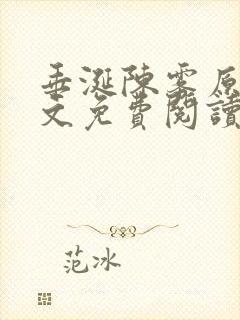 垂涎陳雾原
文免費閱讀
范冰